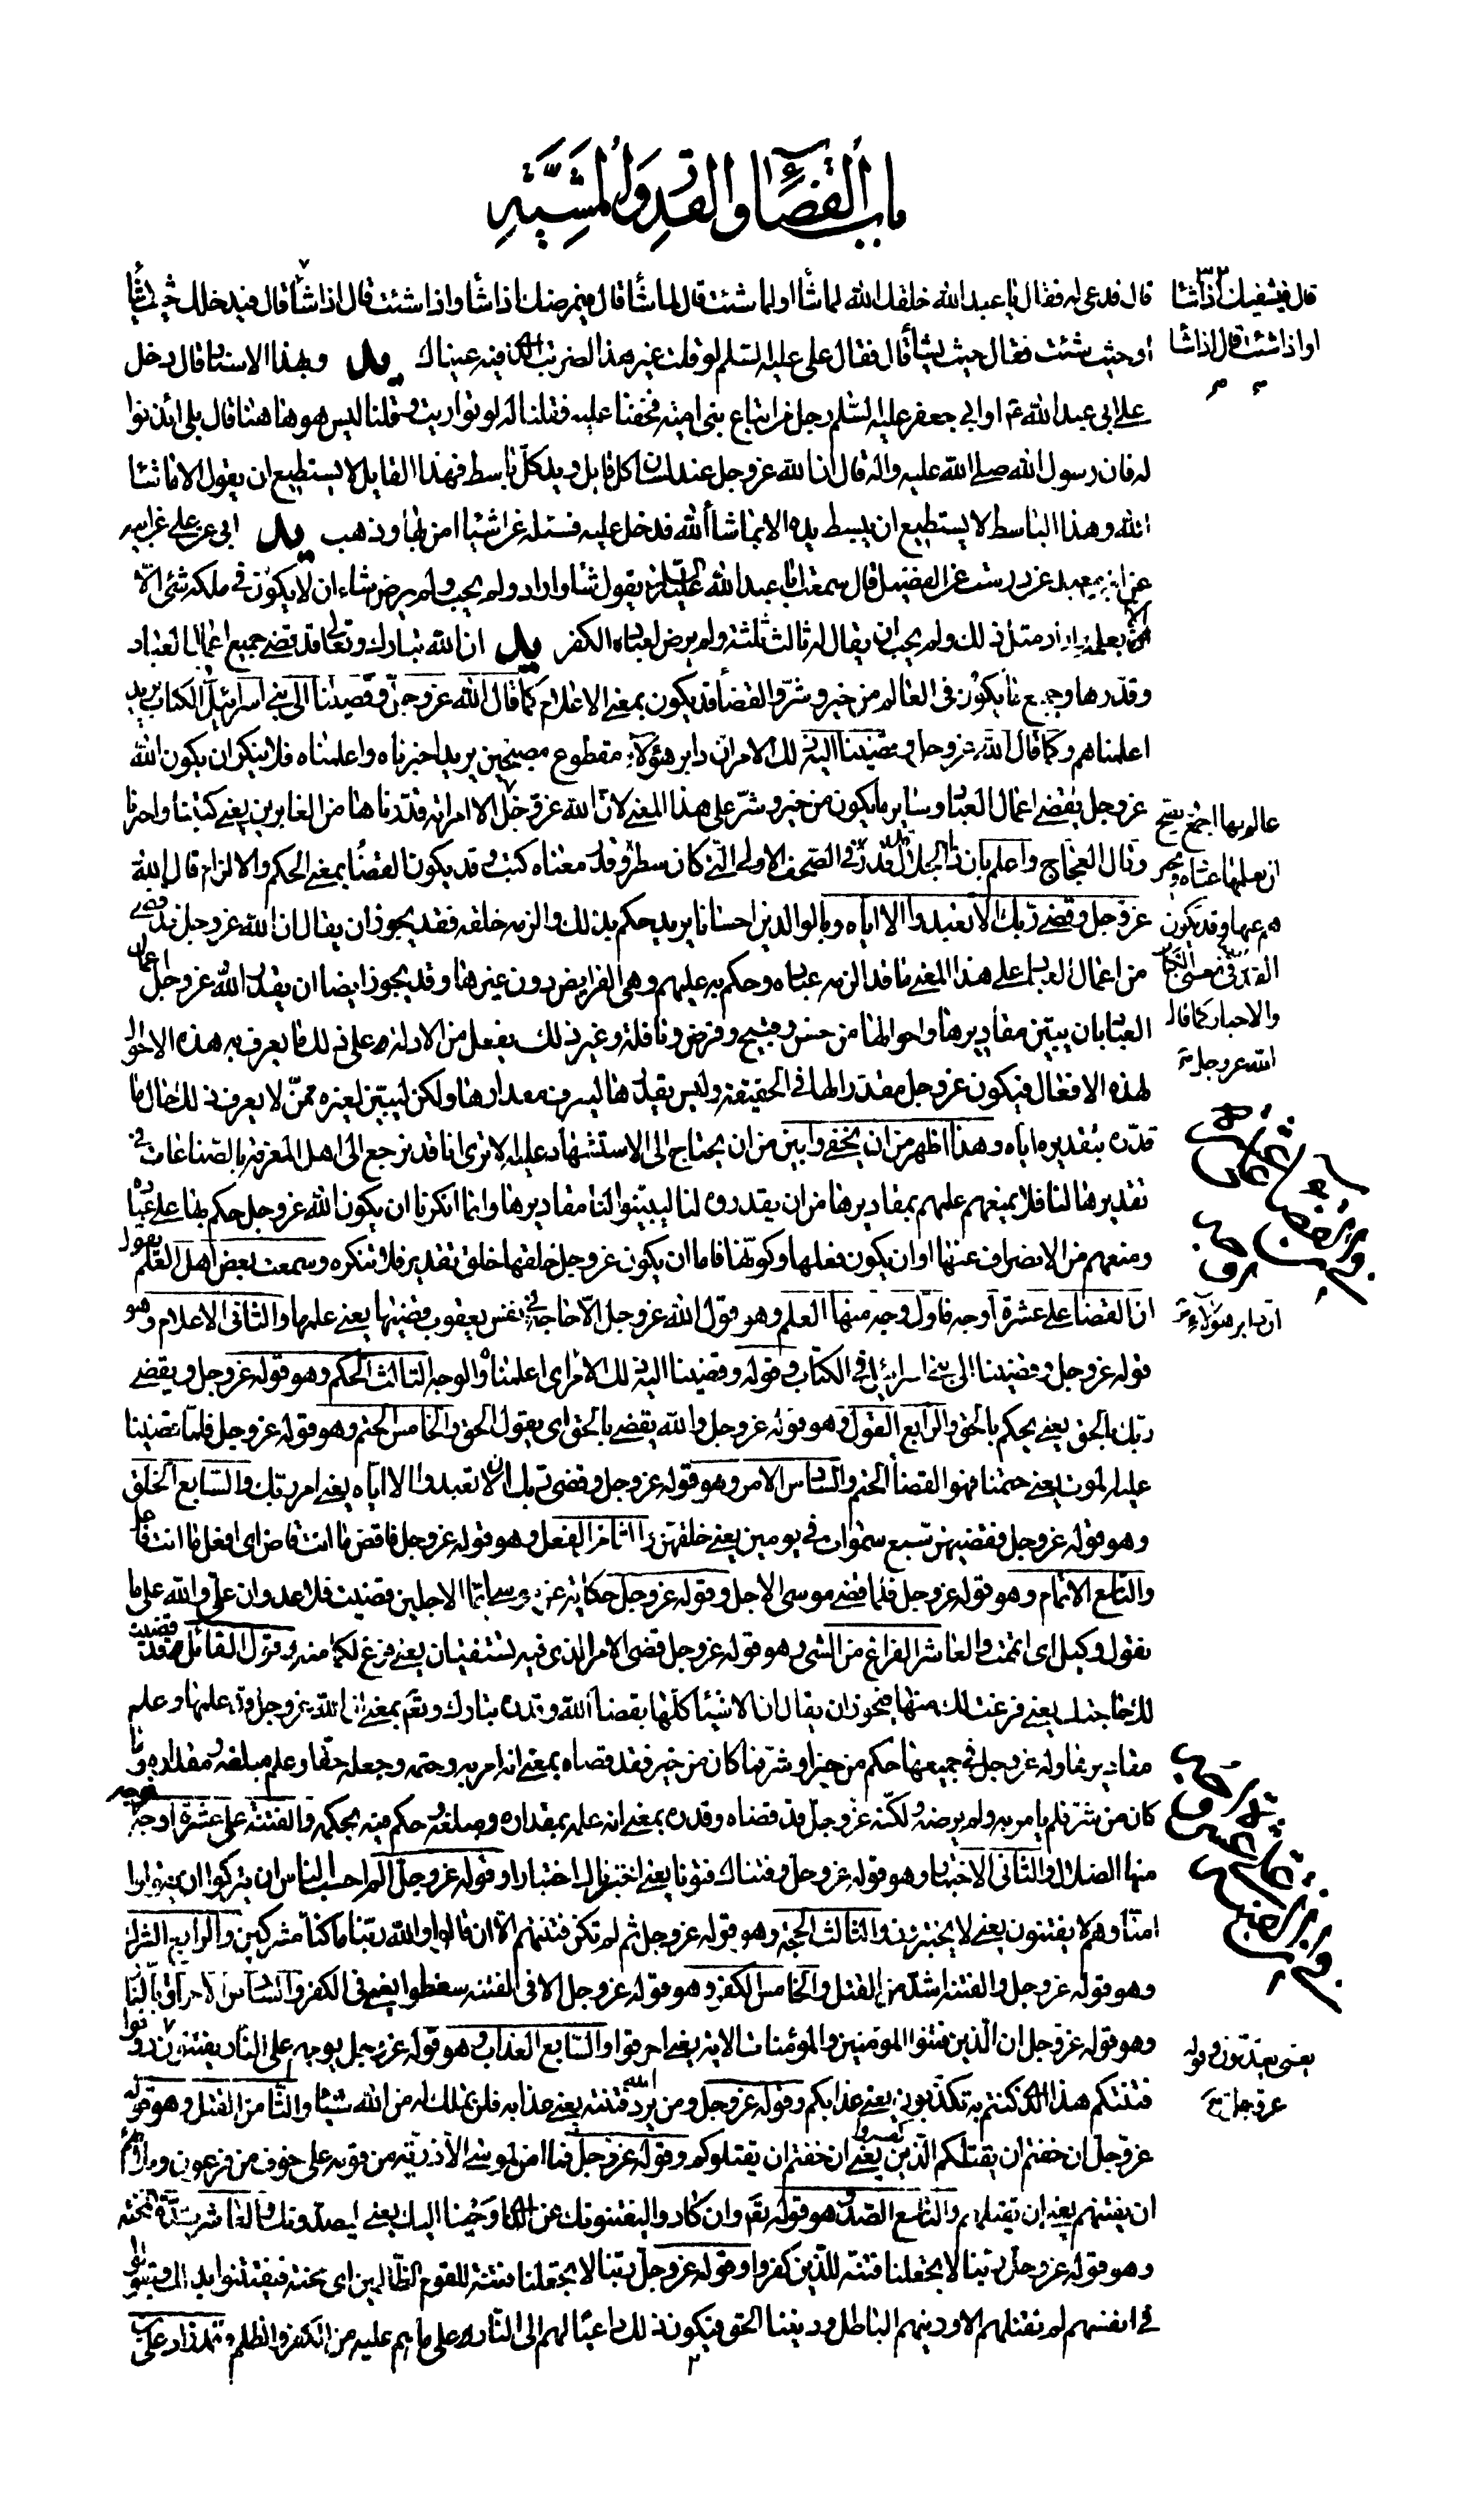 باب القضاء والقدر والمشية
قال فدعى له فقال يا عبد الله خلقك الله لما شاء او لما شئت قال لما شاء قال فيمرضك اذا شاء واذا شئت قال اذا شاء قال فيدخلك حيث يشاء
او حيث شئت فقال حيث يشاء قال فقال على عليه السلم لو قلت غير هذا لضربت الذى فيه عيناك يد وبهذا الاسناد قال دخل
على ابى عبد الله ع او ابى جعفر عليه السلم رجل من اتباع بنى امية فخفنا عليه فقلنا له لو تواريت وقلنا ليس هو هاهنا قال بلى ائذنوا
له فان رسول الله صلى الله عليه واله قال ان الله عز وجل عند لسان كل قايل ويد كل باسط فهذا القايل لا يستطيع ان يقول الا ما شاء
الله وهذا الباسط لا يستطيع ان يبسط يده الا بما شاء الله فدخل عليه فسئله عن اشياء امن بها وذهب يد ابى عن على عن ابيه
عن ابن معبد عن درست عن الفضيل قال سمعت ابا عبد الله عليه السلم يقول شاء واراد ولم يحب ولم يرض شاء ان لا يكون فى ملكه شئ الا
بعلمه واراد مثل ذلك ولم يحب ان يقال له ثالث ثلثة ولم يرض لعباده الكفر يد ان الله تبارك وتعالى قد قضى جميع اعمال العباد
وقدرها وجميع ما يكون فى العالم من خير وشر والقضاء قد يكون بمعنى الاعلام كما قال الله عز وجل وقضينا الى بنى اسرائيل فى الكتاب يريد
اعلمناهم وكما قال الله عز وجل وقضينا اليه ذلك الامر ان دابر هؤلاء مقطوع مصبحين يريد اخبرناه واعلمناه فلا ينكر ان يكون الله
عز وجل يقضى اعمال العباد وساير ما يكون من خير وشر على هذا المعنى لان الله عز وجل الا امراته قدرناها من الغابرين يعنى كتبنا واخبرنا
وقال العجاج واعلم بان ذا الجلال قد قدر فى الصحف الاولى التى كان سطر وقدر معناه كتب وقد يكون القضاء بمعنى الحكم والالزام قال الله
عز وجل وقضى ربك الا تعبدوا الا اياه وبالوالدين احسانا يريد حكم بذلك والزمه خلقه فقد يجوز ان يقال ان الله عز وجل قد قضى
من اعمال العباد على هذا المعنى ما قد الزمه عباده وحكم به عليهم وهى الفرايض دون غيرها وقد يجوز ايضا ان يقدر الله عز وجل اعمال
العباد بان يبين مقاديرها واحوالها من حسن وقبيح وفرض ونافلة وغير ذلك ويفعل من الادلة على ذلك ما يعرف به هذه الاحوال
لهذه الافعال فيكون عز وجل مقدرا لها فى الحقيقة وليس يقدرها ليعرف مقدارها ولكن ليبين لغيره ممن لا يعرف ذلك حال ما
قدره بتقديره اياه وهذا اظهر من ان يخفى وابين من ان يحتاج الى الاستشهاد عليه الا ترى انا قد نرجع الى اهل المعرفة بالصناعات فى
تقديرها لنا فلا يمنعهم علمهم بمقاديرها من ان يقدروه لنا ليبينوا لنا مقاديرها وانما انكرنا ان يكون الله عز وجل حكم بها على عباده
ومنعهم من الانصراف عنها او ان يكون فعلها وكونها فاما ان يكون عز وجل خلقها خلق تقدير فلا ننكره وسمعت بعض اهل العلم يقول
ان القضاء على عشرة اوجه فاول وجه منها العلم وهو قول الله عز وجل الا حاجة فى نفس يعقوب قضيها يعنى علمها والثانى الاعلام وهو
قوله عز وجل وقضينا الى بنى اسرائيل فى الكتاب وقوله وقضينا اليه ذلك الامر اى اعلمناه والوجه الثالث الحكم وهو قوله عز وجل ويقضى
ربك بالحق يعنى يحكم بالحق والرابع القول وهو قوله عز وجل والله يقضى بالحق اى يقول الحق والخامس الحتم وهو قوله عز وجل فلما قضينا
عليه الموت يعنى حتمنا فهو القضاء الحتم والسادس الامر وهو قوله عز وجل وقضى ربك ان لا تعبدوا الا اياه يعنى امر ربك والسابع الخلق
وهو قوله عز وجل فقضيهن سبع سموات فى يومين يعنى خلقهن والثامن الفعل وهو قوله عز وجل فاقض ما انت قاض اى افعل ما انت فاعل
والتاسع الاتمام وهو قوله عز وجل فلما قضى موسى الاجل وقوله عز وجل حكاية عن موسى ايما الاجلين قضيت فلا عدوان على والله على ما
نقول وكيل اى اتممت والعاشر الفراغ من الشئ وهو قوله عز وجل قضى الامر الذى فيه تستفتيان يعنى فرغ لكما منه وقول القائل قد قضيت
لك حاجتك يعنى فرغت لك منها فيجوز ان يقال ان الاشياء كلها بقضاء الله وقدره تبارك وتعالى بمعنى ان الله عز وجل قد علمها وعلم
مقاديرها وله عز وجل فى جميعها حكم من خير او شر فما كان من خير فقد قضاه بمعنى انه امر به وحتمه وجعله حقا وعلم مبلغه ومقداره وما
كان من شر فلم يامر به ولم يرضه ولكنه عز وجل قد قضاه وقدره بمعنى انه علمه بمقداره ومبلغه وحكم فيه بحكمه والفتنة على عشرة اوجه فوجه
منها الضلال والثانى الاختبار وهو قوله عز وجل وفتناك فتونا يعنى اختبرناك اختبارا وقوله عز وجل الم احسب الناس ان يتركوا ان يقولوا
امنا وهم لا يفتنون يعنى لا يختبرون والثالث الحجة وهو قوله عز وجل ثم لم تكن فتنتهم الا ان قالوا والله ربنا ما كنا مشركين والرابع الشرك
وهو قوله عز وجل والفتنة اشد من القتل والخامس الكفر وهو قوله عز وجل الا فى الفتنة سقطوا يعنى فى الكفر والسادس الاحراق بالنار
وهو قوله عز وجل ان الذين فتنوا المؤمنين والمؤمنات الاية يعنى احرقوا والسابع العذاب وهو قوله عز وجل يوم هم على النار يفتنون ذوقوا
فتنتكم هذا الذى كنتم به تكذبون يعنى عذابكم وقوله عز وجل ومن يرد الله فتنته يعنى عذابه فلن تملك له من الله شيئا والثامن القتل وهو قوله
عز وجل ان خفتم ان يفتنكم الذين كفروا يعنى ان خفتم ان يقتلوكم وقوله عز وجل فما امن لموسى الا ذرية من قومه على خوف من فرعون وملائهم
ان يفتنهم يعنى ان يقتلهم والتاسع الصد وهو قوله تعالى وان كادوا ليفتنونك عن الذى اوحينا اليك يعنى ليصدونك والعاشر شدة المحنة
وهو قوله عز وجل ربنا لا تجعلنا فتنة للذين كفروا وقوله عز وجل ربنا لا تجعلنا فتنة للقوم الظالمين اى محنة فيفتتنوا بذلك ويقولوا
فى انفسهم لم نقتلهم الا ودينهم الباطل وديننا الحق فيكون ذلك داعيا لهم الى النار على ما هم عليه من الكفر والظلم وقد زاد على
قال فيشفيك اذا شاء
او اذا شئت قال اذا شاء
عالم بها اجمع يصح
والاخبار كما قال
الله عز وجل
ان دابر هؤلاء
يعنى يعذبون وقوله
عز وجل